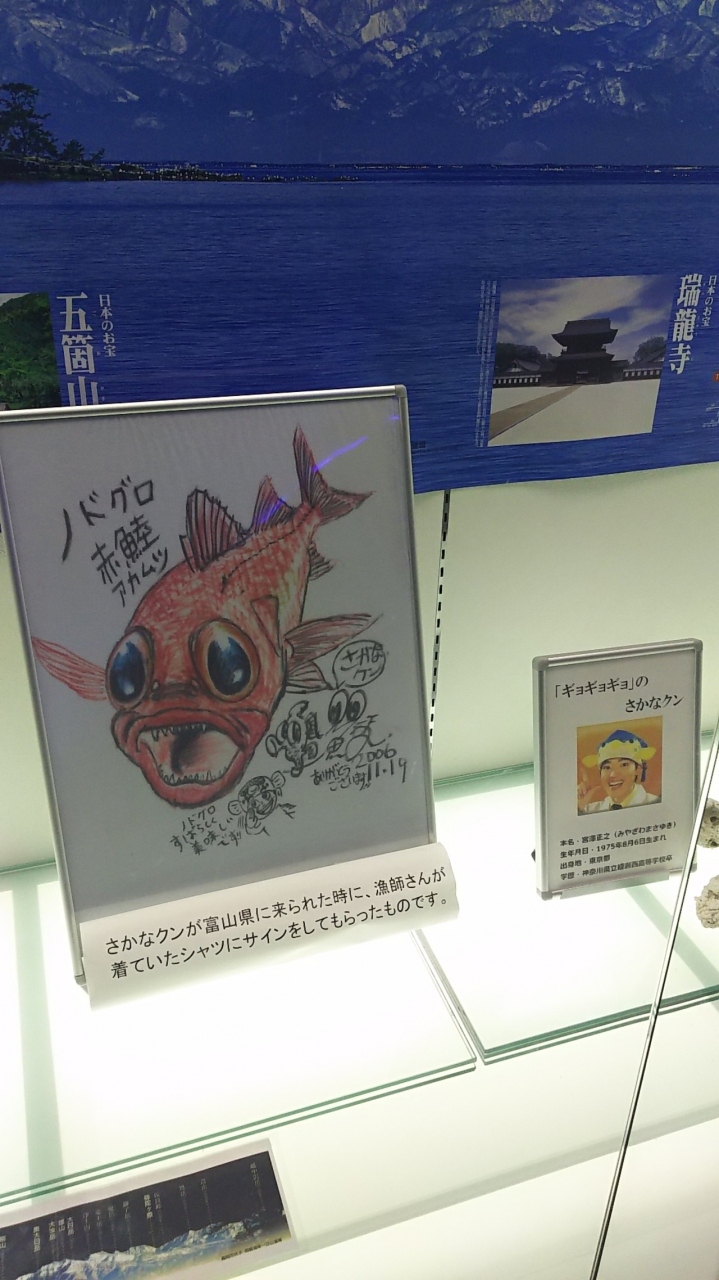 日本のお宝
五箇山
日本のお宝
瑞龍寺
ノドグロ
赤鯥
アカムツ
さかな
クン
2006
11.19
ありがとう
ございます
ノドグロ
すばらしく
美味しい
です
さかなクンが富山県に来られた時に、漁師さんが
着ていたシャツにサインをしてもらったものです。
「ギョギョギョ」の
さかなクン
本名・宮澤正之（みやざわまさゆき）
生年月日・1975年8月6日生まれ
出身地・東京都
学歴・神奈川県立綾瀬西高等学校卒